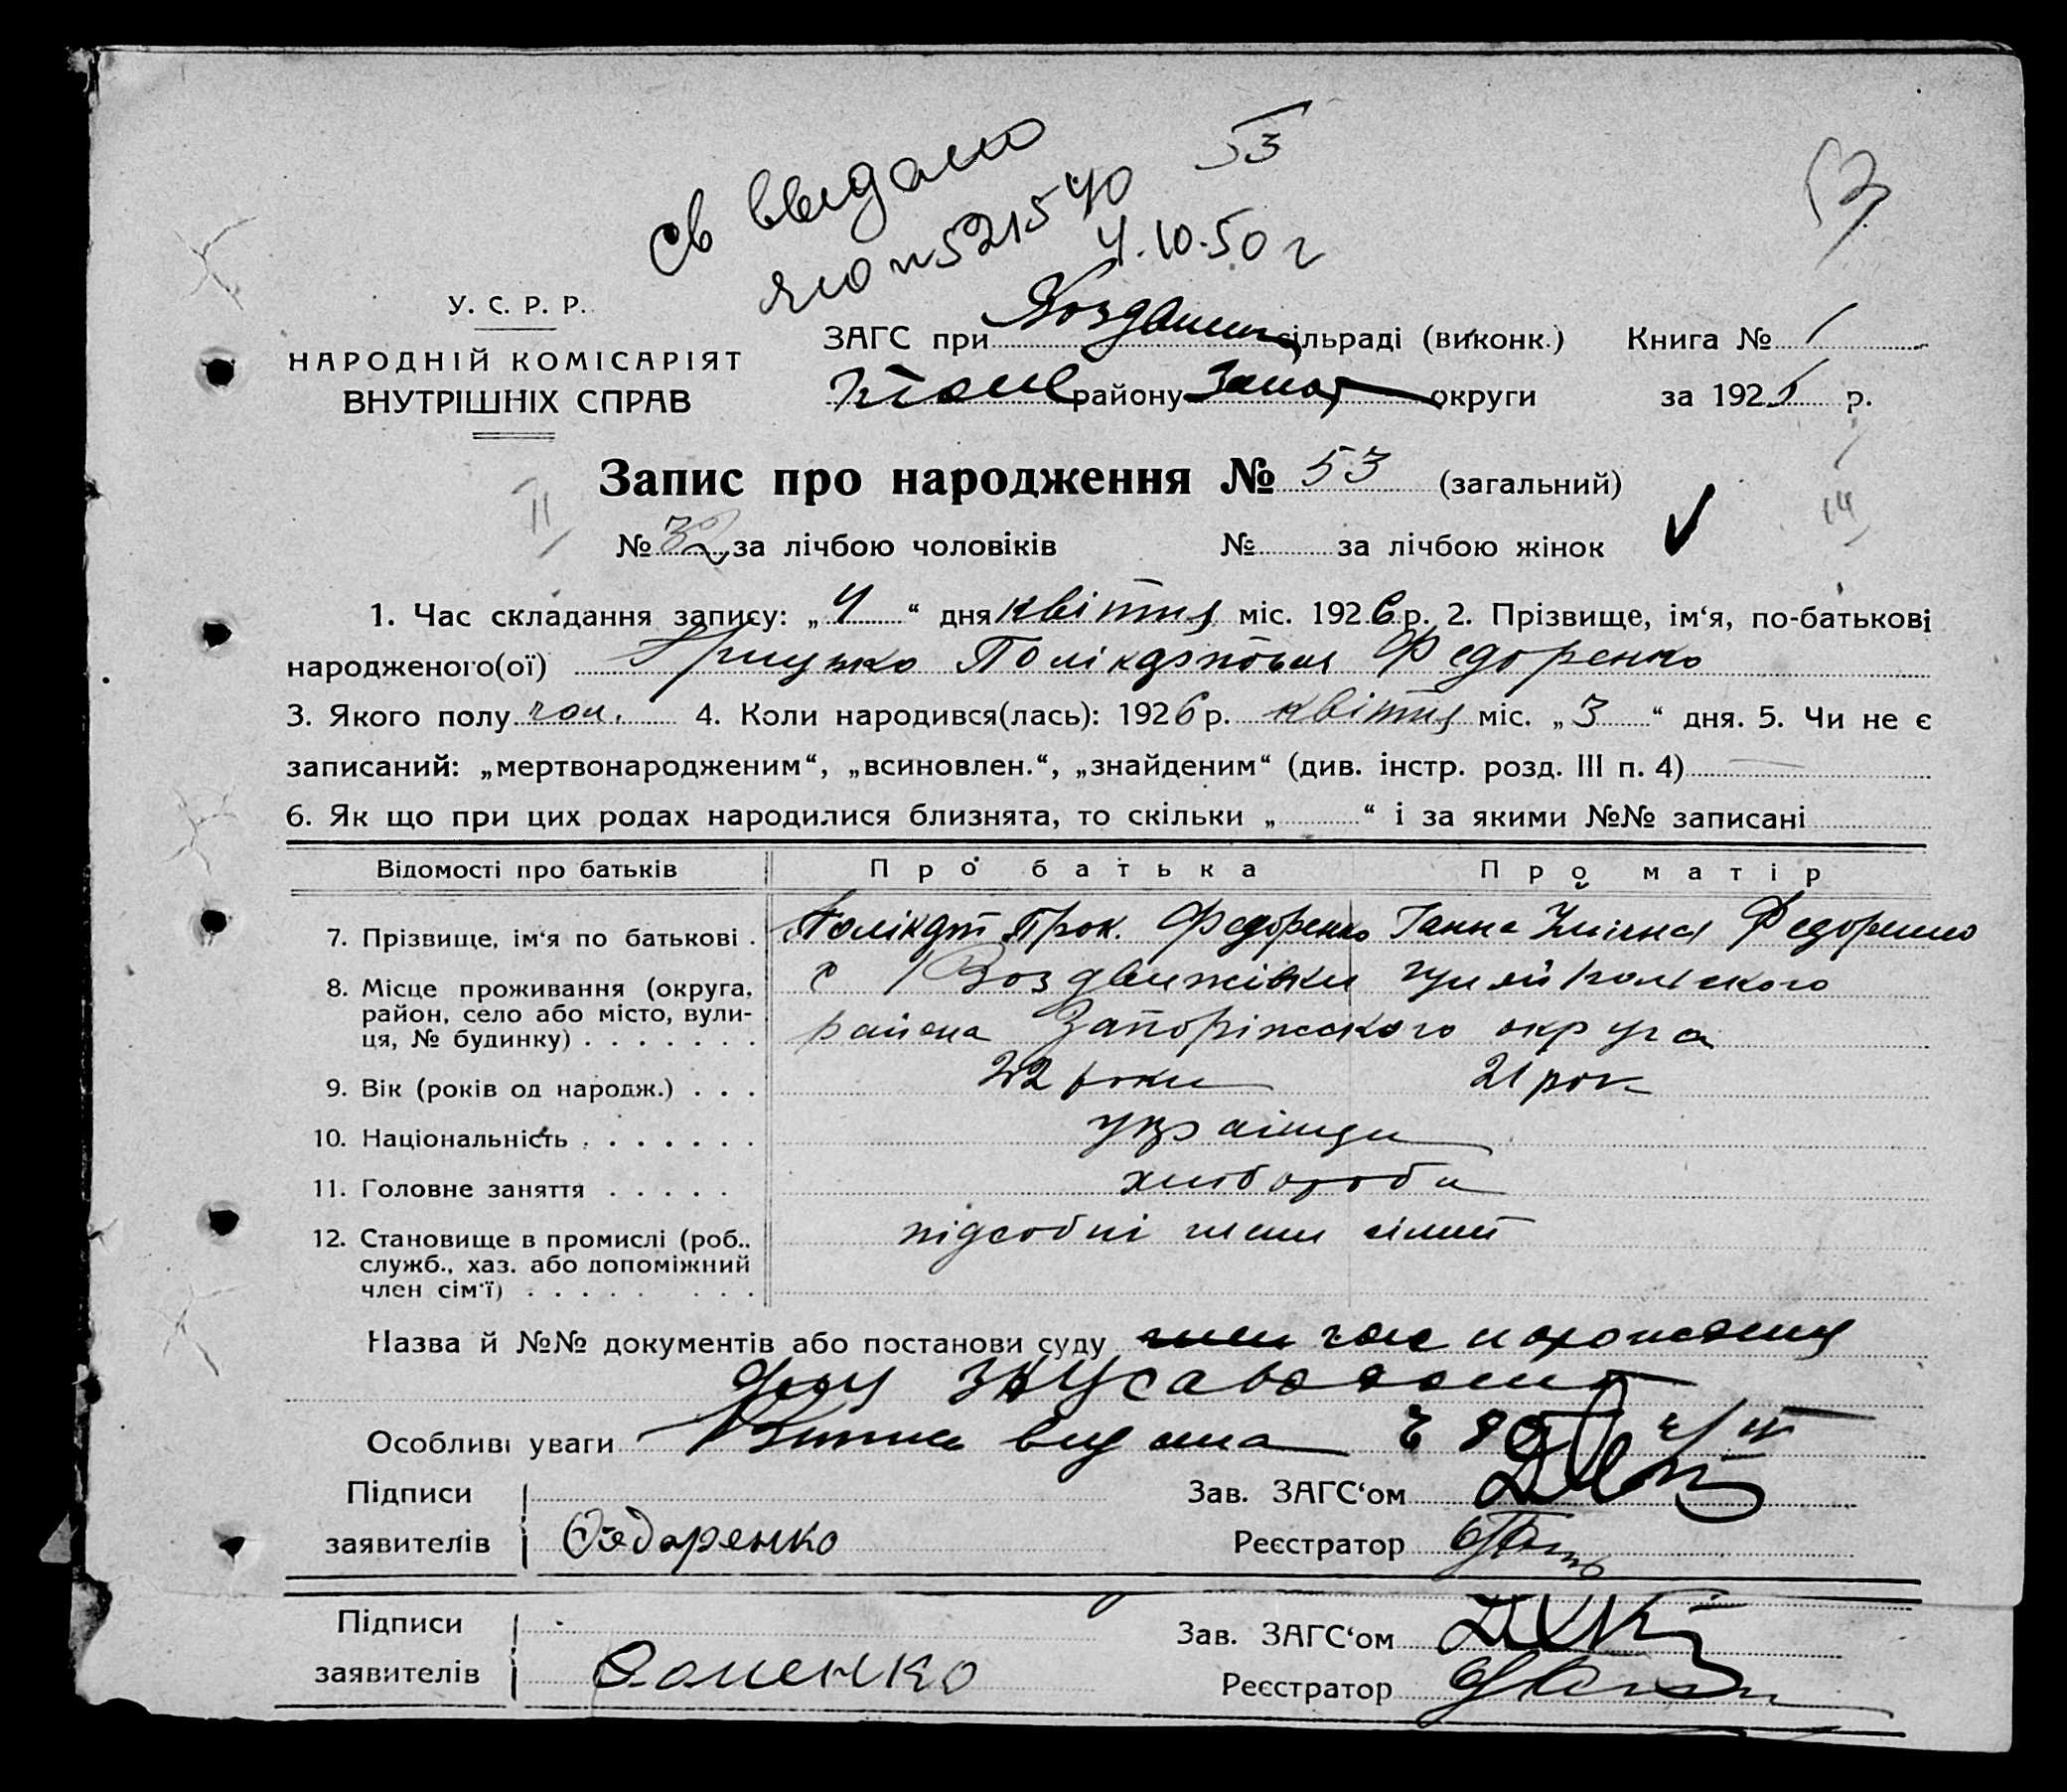 53
Св выдано
ЯЮ №521540
4.10.50 г
У. С. Р. Р.
НАРОДНІЙ КОМІСАРІЯТ
ВНУТРІШНІХ СПРАВ
ЗАГС при Воздвиж сільраді (виконк.) Книга № 1
району Запор округи за 1926 р.
Запис про народження № 53 (загальний)
№ 32 за лічбою чоловіків № за лічбою жінок
1. Час складання запису: „4“ дня квітня міс. 1926 р. 2. Прізвище, ім‘я, по-батькові
народженого(ої) Грицько Полікарпович Федоренко
3. Якого полу чол. 4. Коли народився(лась): 1926 р. квітня міс. „3“ дня. 5. Чи не є
записаний: „мертвонародженим“, „всиновлен.“, „знайденим“ (див. інстр. розд. III п. 4)
6. Як що при цих родах народилися близнята, то скільки „ “ і за якими №№ записані
Відомості про батьків Про батька Про матір
7. Прізвище, ім‘я по батькові . Полікарп Прок. Федоренко Ганна Федоренко
8. Місце проживання (округа, с Воздвижівки Гуляйпольского
район, село або місто, вули-
ця, № будинку) . . . . . . . района Запоріжского округа
9. Вік (років од народж.) . . . 22 роки 21 рок
10. Національність . . . . . . . українці
11. Головне заняття . . . . . хлібороби
12. Становище в промислі (роб., підсобні члени сімьи
служб., хаз. або допоміжний
член сім‘ї) . . . . . . . .
Назва й №№ документів або постанови суду
Особливі уваги видана
Підписи Зав. ЗАГС‘ом
заявителів Федоренко Реєстратор
Підписи Зав. ЗАГС‘ом
заявителів Реєстратор